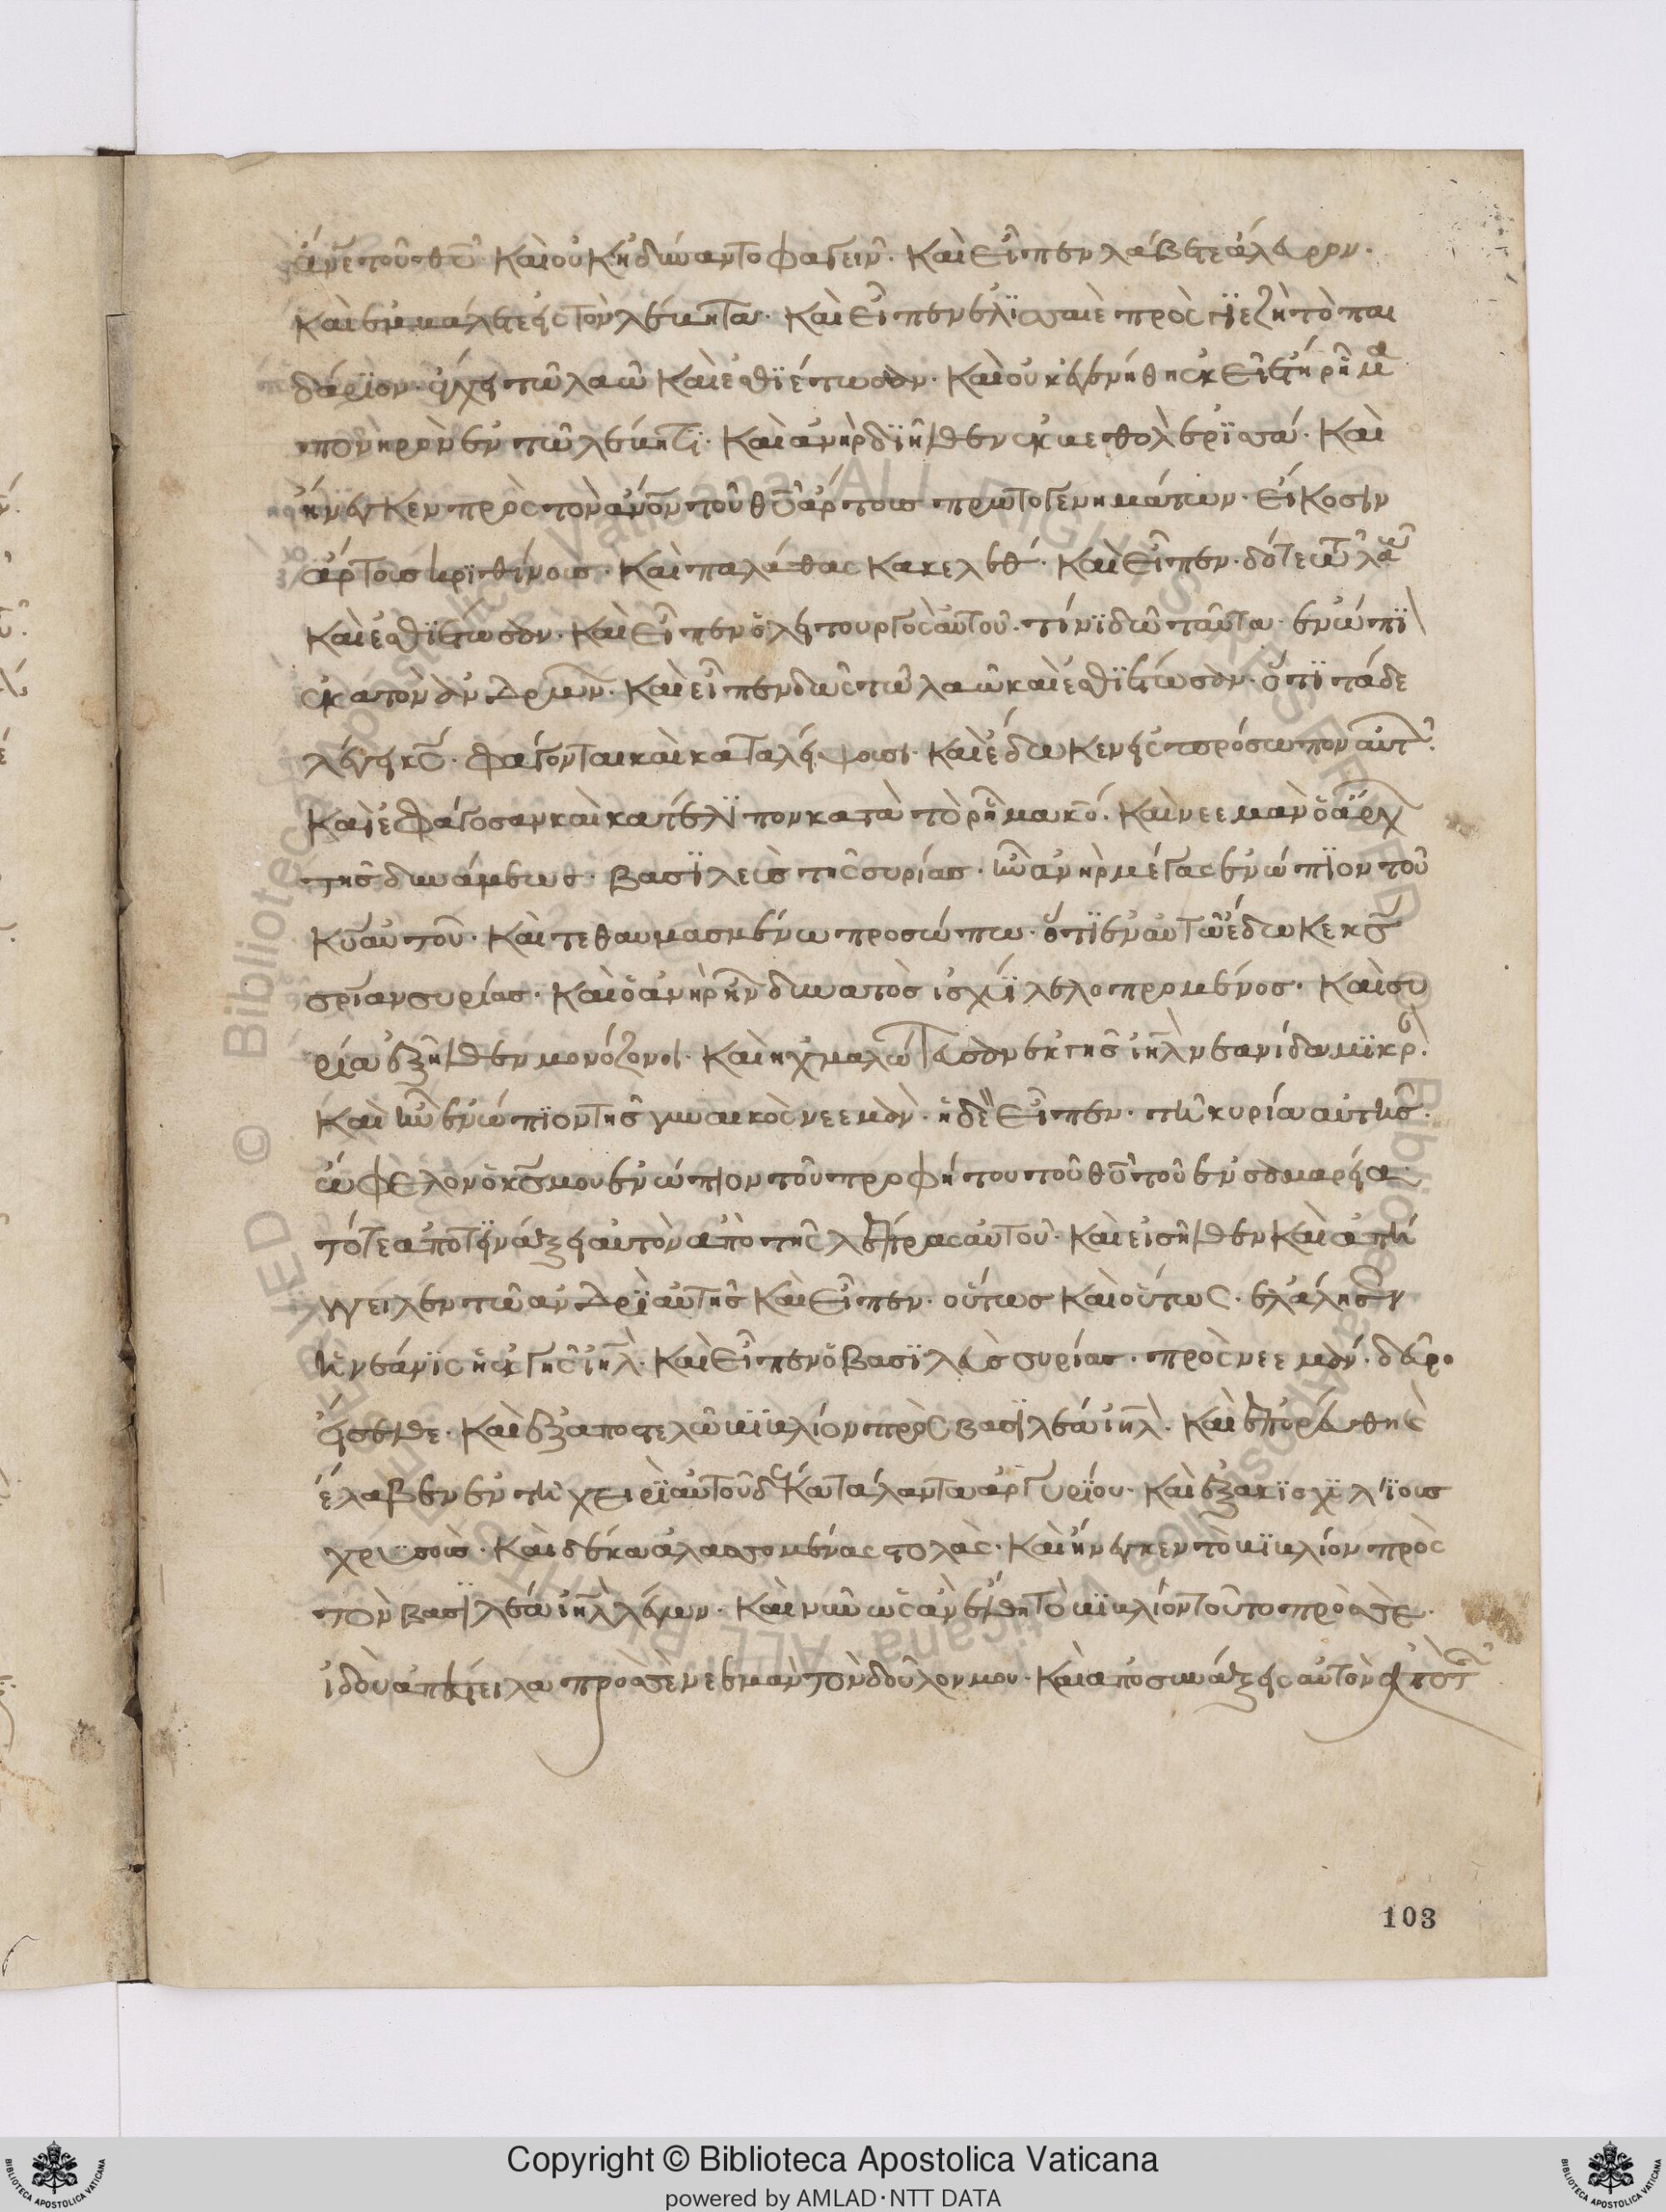 ἄνε τοῦ θῦ. Καὶ οὐκ ἠδύναντο φαγεῖν. Καὶ εἶπεν λάβετε ἄλευρον.
καὶ ἐμμάλετε εἰς τὸν λέβητα. Καὶ εἶπεν ἐλισσαιὲ πρὸς γιεζὴ τὸ παι
δάριον. ἔγχει τῶ λαῶ καὶ ἐσθιέτωσαν. Καὶ οὐκ ἐγενήθη ἐκεῖ ἔτι ῥῆμα
πονηρὸν ἐν τῶ λέβητι. Καὶ ἀνὴρ διῆλθεν ἐκ βεθαλὲ βρισσά. Καὶ
ἤνεγκεν πρὸς τὸν ἄνον τοῦ θῦ ἄρτους πρωτογενημάτων. εἴκοσιν
ἄρτους κριθίνους. Καὶ παλάθας κακελέθ. Καὶ εἶπεν. δότε τῶ λαῶ
καὶ ἐσθιέτωσαν. Καὶ εἶπεν ὁ λειτουργὸς αὐτοῦ. τίνι δῶ ταῦτα ἐνώπι
ἑκατὸν ἀνδρῶν. Καὶ εἶπεν δὸς τῶ λαῶ καὶ ἐσθιέτωσαν. ὅτι τάδε
λέγει κς. φάγονται καὶ καταλείψουσι. Καὶ ἔδωκεν εἰς πρόσωπον αὐτ.
Καὶ ἐφάγοσαν καὶ κατέλιπον κατὰ τὸ ῥῆμα κυ. Καὶ νεεμὰν ὁ ἄρχ
τῆς δυνάμεως. βασιλεὺς τῆς συρίας. ἦν ἀνὴρ μέγας ἐνώπιον τοῦ
κυ αὐτοῦ. Καὶ τεθαυμασμένω προσώπω. ὅτι ἐν αὐτῶ ἔδωκε κς
σριαν συρίας. Καὶ ὁ ἀνὴρ ἦν δυνατὸς ἰσχύϊ λελοπρομένος. Καὶ συ
ρία ἐξῆλθεν μονόζονοι. Καὶ ἠχμαλώτευσαν ἐκ τῆς ἰηλ νεανίδα μικρ.
Καὶ ἦν ἐνώπιον τῆς γυναικὸς νεεμὰν. ἡ δὲ εἶπεν. τῆ κυρία αὐτῆς.
ὤφελον ὁ κς μου ἐνώπιον τοῦ προφήτου τοῦ θῦ τοῦ ἐν σαμαρεία
τότε ἀποτινάξει αὐτὸν ἀπὸ τῆς λέπρας αὐτοῦ. Καὶ εἰσῆλθεν καὶ ἀπή
γγειλεν τῶ ἀνδρὶ αὐτῆς καὶ εἶπεν. οὕτως καὶ οὕτως. ἐλάλησεν
ἡ νεάνις ἡ ἐκ γῆς ἰηλ. Καὶ εἶπεν ὁ βασιλεὺς συρίας. πρὸς νεεμάν. δεῦρο
εἴσελθε. Καὶ ἐξαποστελῶ βιβλίον πρὸς βασιλέα ἰηλ. Καὶ ἐπορεύθη καὶ
ἔλαβεν ἐν τῆ χειρὶ αὐτοῦ δέκα τάλαντα ἀργυρίου. Καὶ ἑξακισχιλίους
χρυσοὺς. Καὶ δέκα ἀλασσομένας στολὰς. Καὶ ἤνεγκεν τὸ βιβλίον πρὸς
τὸν βασιλέα ἰηλ λέγων. Καὶ νῦν ὡς ἂν ἔλθη τὸ βιβλίον τοῦτο πρὸς σὲ.
ἰδοὺ ἀπέστειλα πρὸς σὲ νεεμὰν τὸν δοῦλον μου. Καὶ ἀποσυνάξεις αὐτὸν ἀπὸ τ
103
Copyright © Biblioteca Apostolica Vaticana
powered by AMLAD·NTT DATA